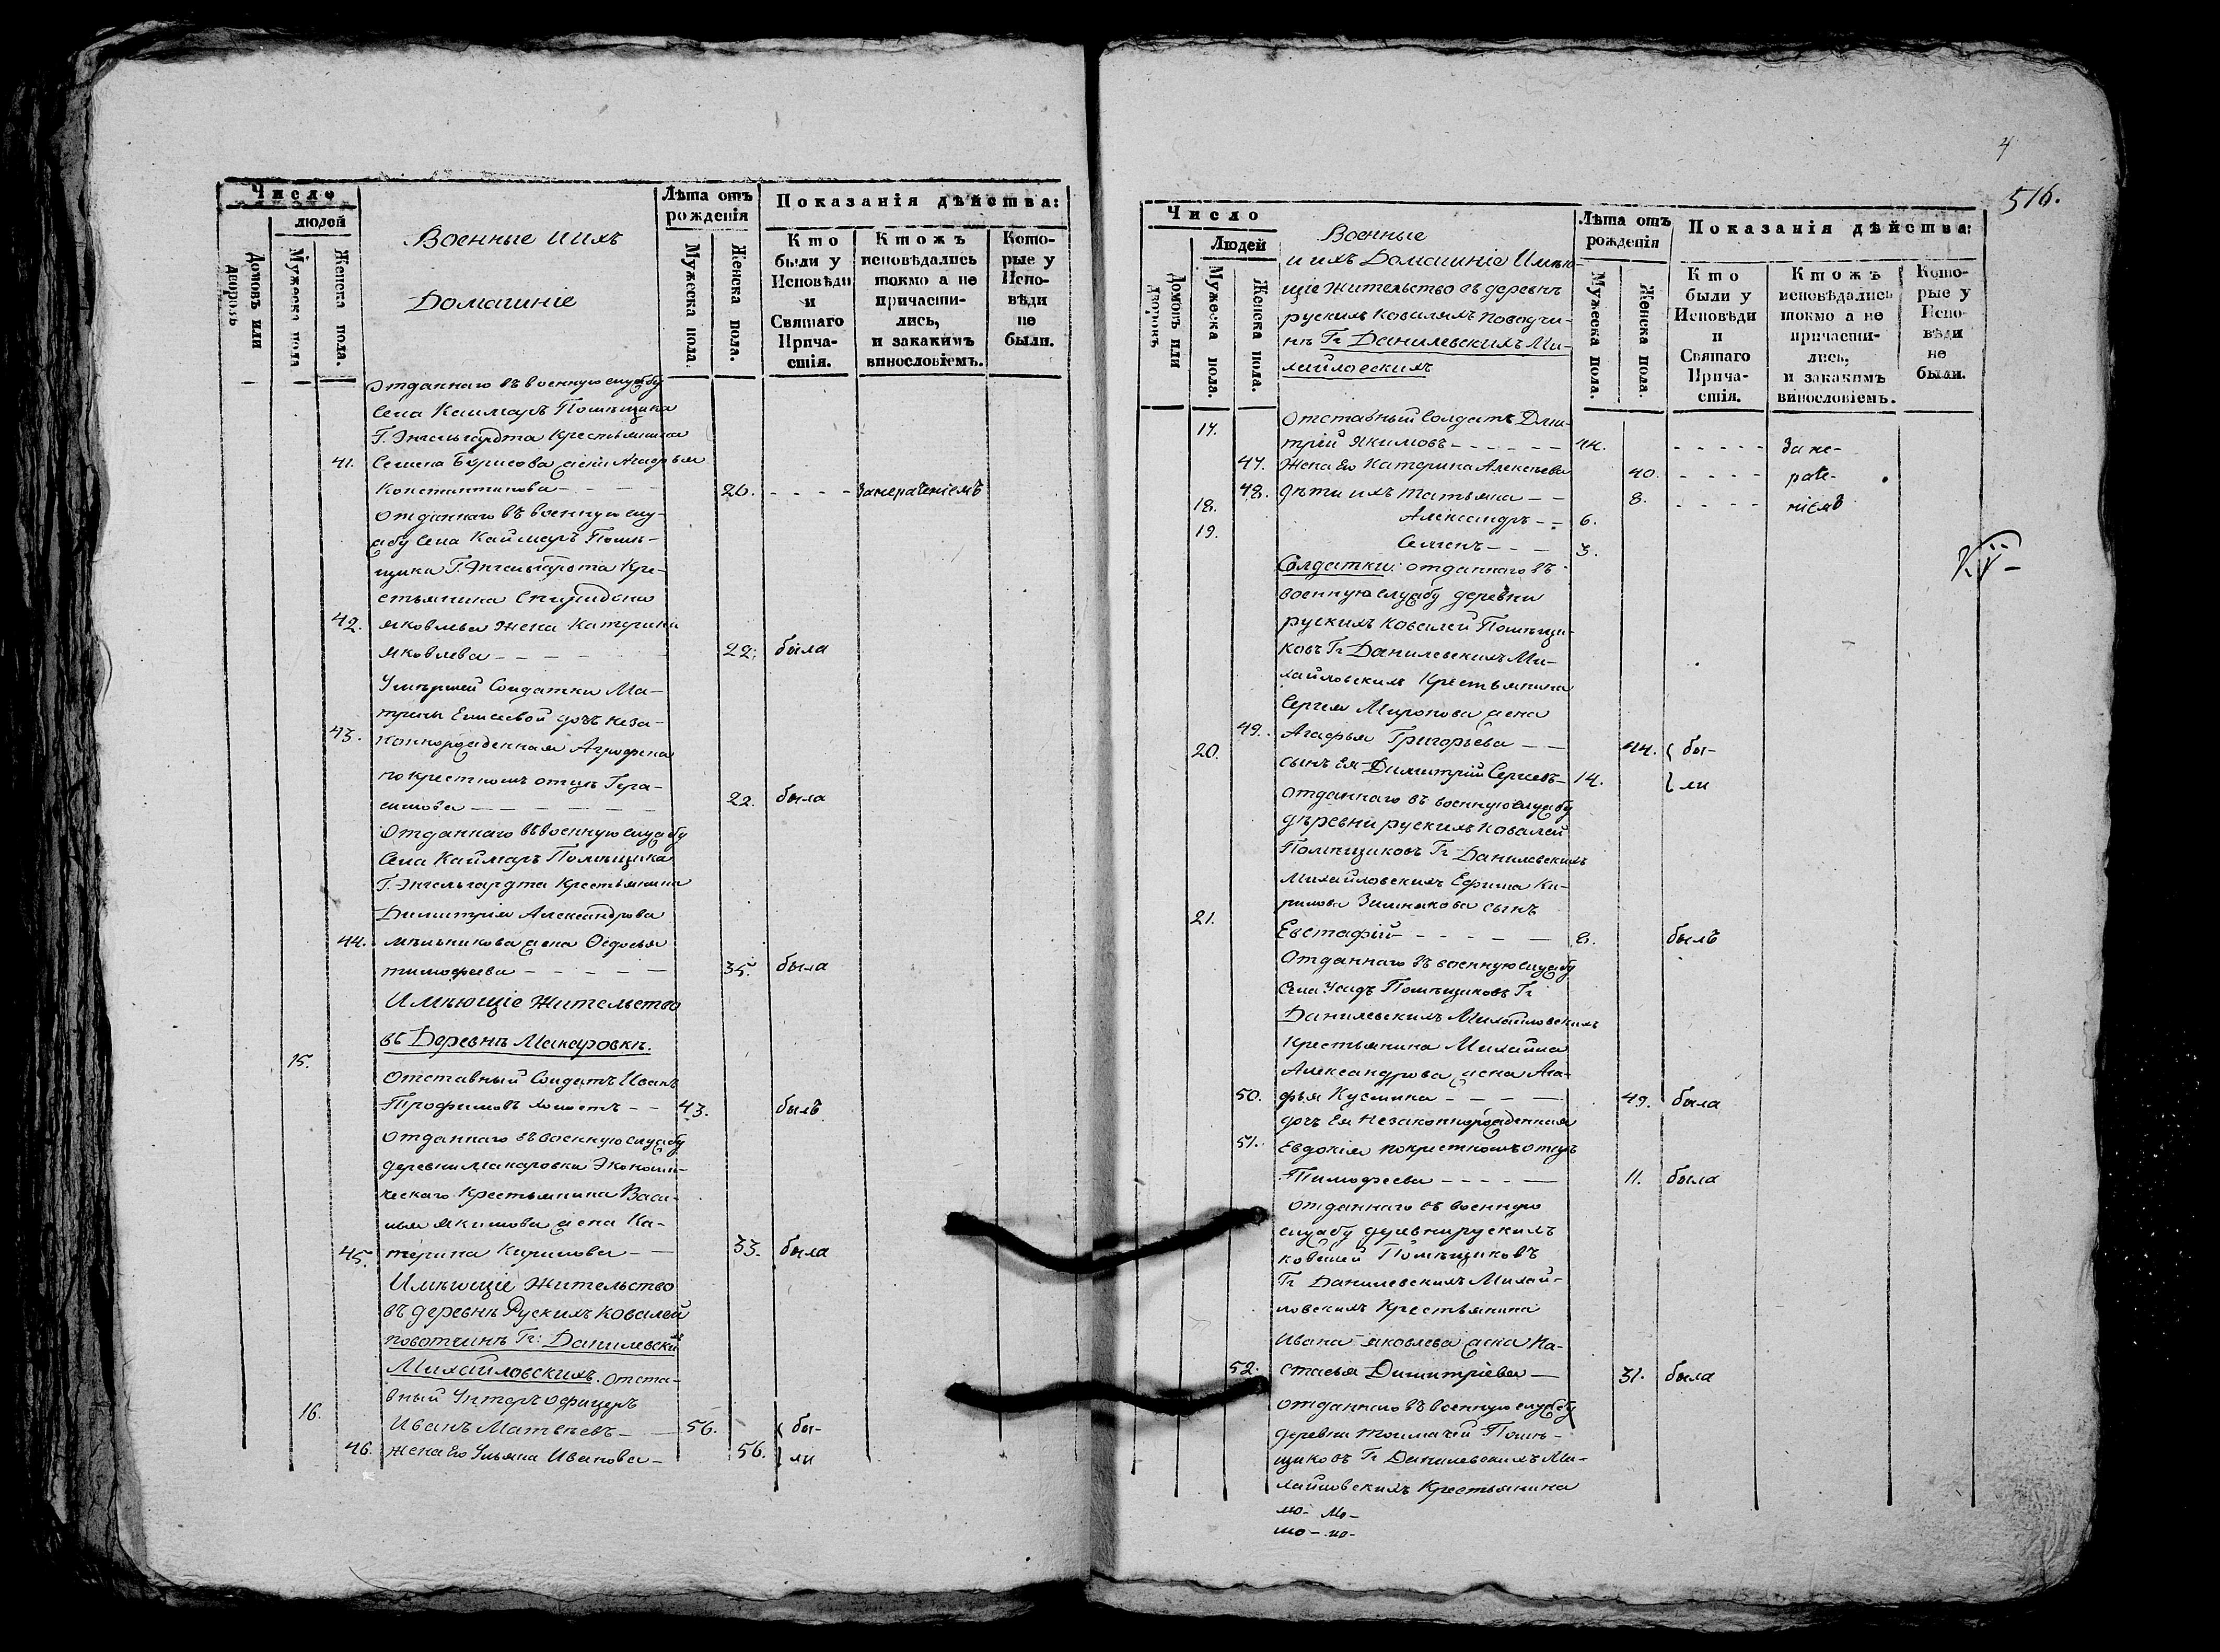 Число
людей
Домовъ или
дворовъ
Мужеска пола
Женска пола.
Военные и ихъ
Домашніе
Лѣта отъ
рожденія
Мужеска пола.
Женска пола.
Показанія дѣйства:
Кто
были у
Исповѣди
и
Святаго
Прича-
стія.
Ктожъ
исповѣдались
токмо а не
причасти-
лись,
и закакимъ
винословіемъ.
Кото-
рые у
Испо-
вѣди
не
были.
Отданнаго въ военную службу
Села Каимаръ Помѣщика
Г. Энгельгардта Крестьянина
41. Семена Борисова жена Агафья
Константинова - - - - 26. - - - - Занераченіемъ
Отданнаго въ военную слу-
жбу Села Каймаръ Помѣ-
щика Г. Энгельгардта Кре-
стьянина Спиридона
42. яковлева жена Катерина
яковлева - - - - 22. была
Умершей Солдатки Ма-
трены Елисеевой дочь неза-
43. коннорожденная Агрофена
по крестномъ отцѣ Гера-
симова - - - - 22. была
Отданнаго въ военную службу
Села Каймаръ Помѣщика
Г. Энгельгардта Крестьянина
Димитрія Александрова
44. мѣльникова жена Ѳедосья
тимофеева - - - - 35. была
Имѣющіе Жительство
въ Деревнѣ Макаровкѣ.
15.
Отставный Солдатъ Иванъ
Трофимовъ холостъ - - 43. былъ
Отданнаго въ военную службу
деревни макаровки Экономи-
ческаго Крестьянина Васи-
лья якимова жена Ка-
45. терина Кирилова - - 33. была
Имѣющіе Жительство
въ деревнѣ Рускихъ Ковалей
повотчинѣ Гг: Данилевскихъ
Михайловскихъ. Отста-
вный Унтеръ офицеръ
16. Иванъ Матвѣевъ - - 56. бы-
46. жена Его Ульяна Иванова - 56. ли
4
516.
Число
Людей
Домовъ или
дворовъ
Мужеска пола.
Женска пола.
Военные
и ихъ Домашніе Имѣю-
щіе жительство въ деревнѣ
рускихъ Коваляхъ повотчи-
нѣ Гг Данилевскихъ Ми-
хайловскихъ
Лѣта отъ
рожденія
Мужеска пола.
Женска пола.
Показанія дѣйства:
Кто
были у
Исповѣди
и
Святаго
Прича-
стія.
Ктожъ
исповѣдались
токмо а не
причасти-
лись,
и закакимъ
винословіемъ.
Кото-
рые у
Испо-
вѣди
не
были.
17. Отставный Солдатъ Дми-
трій Якимовъ - - - - 44. - - - - Зане-
47. Жена Его Катерина Алексѣева 40. - - - - раче-
48. дѣти ихъ Татьяна - - 8. - - - - ніемъ
18. Александръ - - 6.
19. Семенъ - - - 3.
Солдатки: отданнаго въ
военную службу деревни
рускихъ Ковалей Помѣщи-
ковъ Гг Данилевскихъ Ми-
хайловскихъ Крестьянина
Сергея Миронова жена
49. Агафья Григорьева - - 44. бы-
20. сынъ Ея Димитрій Сергеевъ - 14. ли
Отданнаго въ военную службу
дѣревни рускихъ Ковалей
Помѣщиковъ Гг Данилевскихъ
Михайловскихъ Ефима Ки-
рилова Зимнякова сынъ
21. Евстафій - - - - 8. былъ
Отданнаго въ военную службу
Села Усадъ Помѣщиковъ Гг
Данилевскихъ Михайловскихъ
Крестьянина Михайла
Александрова жена Ага-
50. фья Кусмина - - - - 49. была
дочь Ея незаконнорожденная
51. Евдокія покрестномъ отцѣ
Тимофеева - - - - 11. была
Отданнаго въ военную
службу деревни рускихъ
ковалей Помѣщиковъ
Гг Данилевскихъ Михай-
ловскихъ Крестьянина
Ивана яковлева жена На-
52. стасья Димитріева - 31. была
Отданнаго въ военную службу
деревни толмачей Помѣ-
щиковъ Гг Данилевскихъ Ми-
хайловскихъ Крестьянина